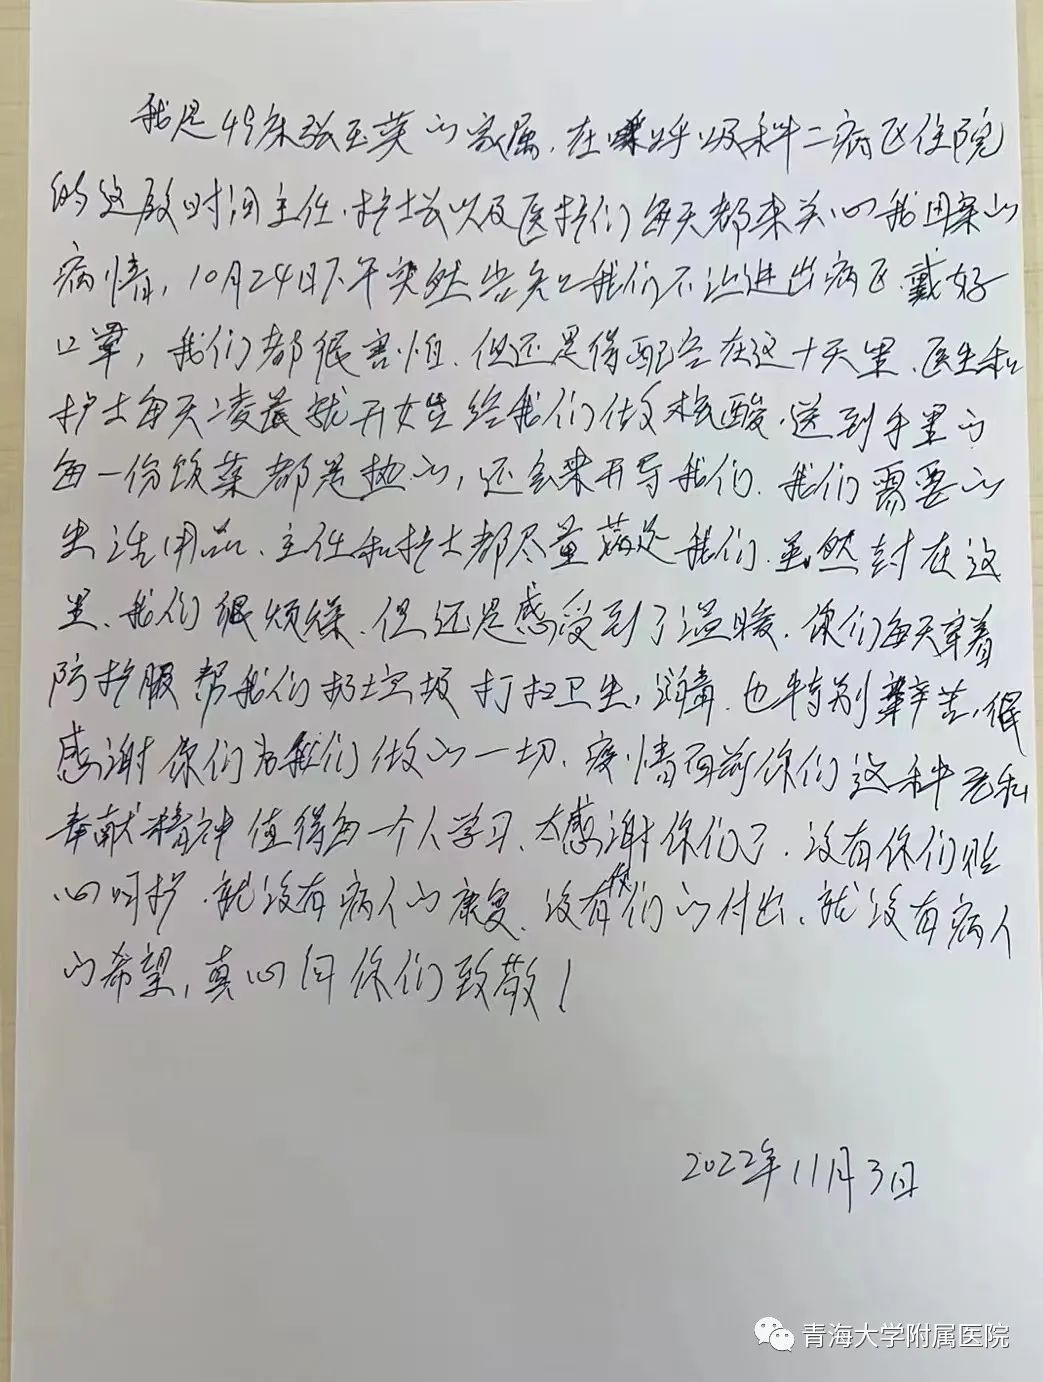 我是49床张玉英的家属.在呼吸科二病区住院
的这段时间主任.护士长以及医护们每天都来关心我因亲的
病情,10月24日下午突然告知我们不让进出病区.戴好
口罩,我们都很害怕.但还是得配合在这十天里.医生和
护士每天凌晨就开始给我们做核酸.送到手里的
每一份饭菜都是热的,还会来开导我们.我们需要的
生活用品.主任和护士都尽量满足我们.虽然封在这
里.我们很烦燥.但还是感受到了温暖.你们每天穿着
防护服帮我们扔垃圾打扫卫生,消毒.也特别辛苦,很
感谢你们为我们做的一切.疫情面前你们这种无私
奉献精神值得每一个人学习.太感谢你们了.没有你们
心呵护.就没有病人的康复.没有你们的付出.就没有病人
的希望,真心向你们致敬!
2022年11月3日
青海大学附属医院